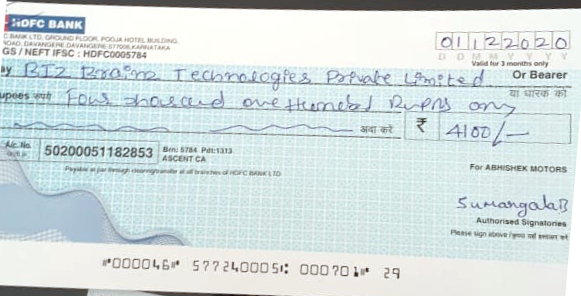 HDFC BANK
C BANK LTD, GROUND FLOOR, POOJA HOTEL BUILDING,
ROAD, DAVANGERE, DAVANGERE-577006, KARNATAKA
GS / NEFT IFSC : HDFC0005784
01122020
D D M M Y Y Y Y
Valid for 3 months only
ay BIZ Brainz Technologies Private Limited Or Bearer
या धारक को
upees रुपये Four thousand one Hundred Rupees only
अदा करे ₹ 4100/-
A/c. No. 50200051182853 Brn: 5784 Pdt:1313
ASCENT CA
Payable at par through clearing/transfer at all branches of HDFC BANK LTD
For ABHISHEK MOTORS
SumangalaB
Authorised Signatories
Please sign above /
⑈000046⑈ 577240005⑆ 000701⑈ 29